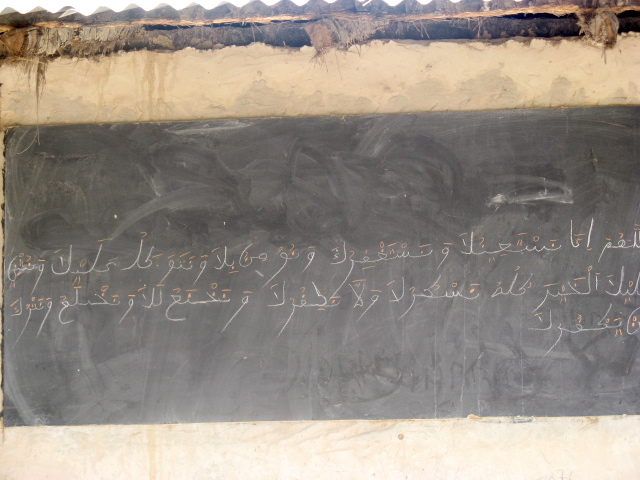 اللهم إنا نستعينك و نستغفرك و نؤمن بك و نتوكل عليك و نثني
عليك الخير كله نشكرك ولا نكفرك و نخنع لك و نخلع و نترك
من يكفرك